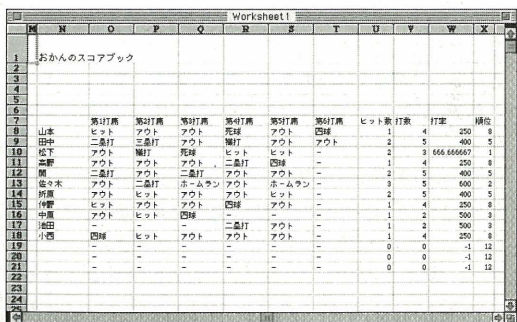 Worksheet1
M N O P Q R S T U V W X
1 おかんのスコアブック
2
3
4
5
6
7 第1打席 第2打席 第3打席 第4打席 第5打席 第6打席 ヒット数 打数 打率 順位
8 山本 ヒット アウト アウト 死球 アウト 四球 1 4 250 8
9 田中 二塁打 三塁打 アウト 犠打 アウト アウト 2 5 400 5
10 松下 アウト 犠打 死球 ヒット ヒット - 2 3 666.666667 1
11 高野 アウト アウト アウト 二塁打 四球 - 1 4 250 8
12 関 二塁打 アウト 二塁打 アウト アウト - 2 5 400 5
13 佐々木 アウト 二塁打 ホームラン アウト ホームラン - 3 5 600 2
14 折原 アウト ヒット アウト アウト ヒット - 2 5 400 5
15 仲野 ヒット アウト アウト 四球 アウト - 1 4 250 8
16 中原 アウト ヒット 四球 - - - 1 2 500 3
17 池田 - - - 二塁打 アウト - 1 2 500 3
18 小西 四球 ヒット アウト アウト アウト - 1 4 250 8
19 - - - - - - 0 0 -1 12
20 - - - - - - 0 0 -1 12
21 - - - - - - 0 0 -1 12
22
23
24